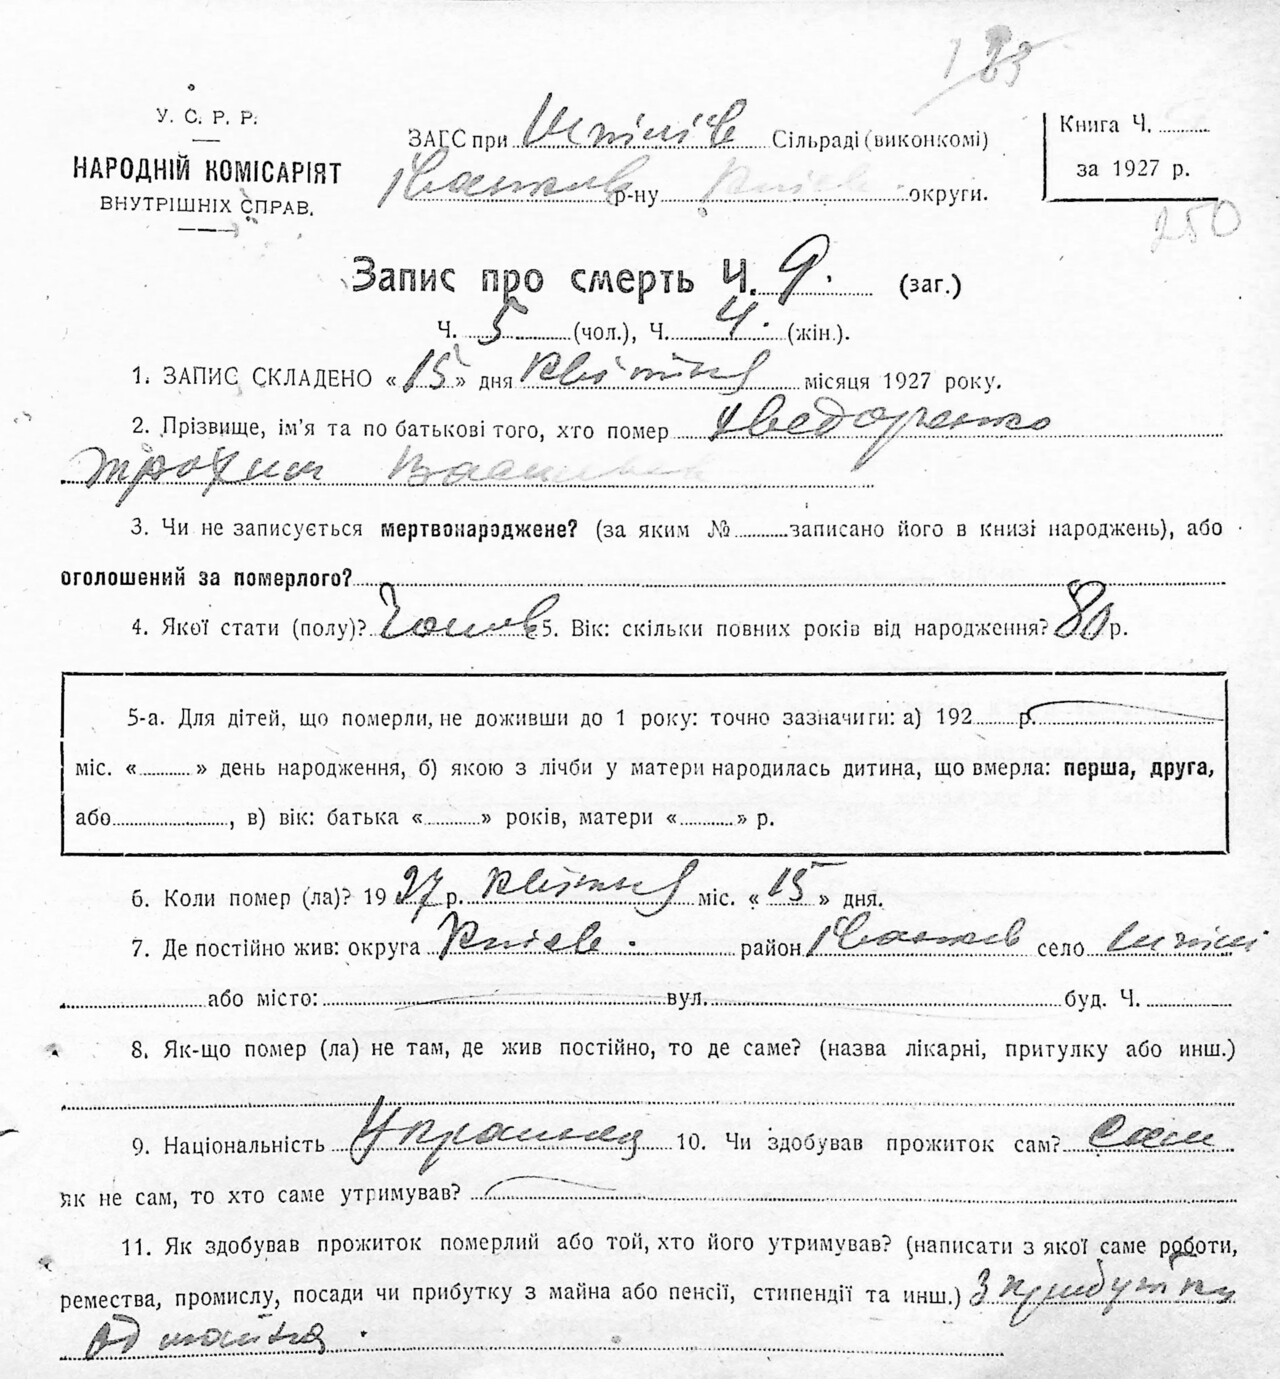 У. С. Р. Р.
НАРОДНІЙ КОМІСАРІЯТ
ВНУТРІШНІХ СПРАВ.
ЗАГС при Шпилів Сільраді (виконкомі)
Іванків р-ну Київ округи.
Книга Ч.
за 1927 р.
250
Запис про смерть Ч. 9. (заг.)
Ч. 5 (чол.), Ч. 4. (жін.).
1. ЗАПИС СКЛАДЕНО «15» дня Квітня місяця 1927 року.
2. Прізвище, ім'я та по батькові того, хто помер Хведоренко
Трохим
3. Чи не записується мертвонароджене? (за яким № записано його в книзі народжень), або
оголошений за померлого?
4. Якої стати (полу)? Чолов 5. Вік: скільки повних років від народження? 80 р.
5-а. Для дітей, що померли, не доживши до 1 року: точно зазначити: а) 192 р.
міс. « » день народження, б) якою з лічби у матери народилась дитина, що вмерла: перша, друга,
або , в) вік: батька « » років, матери « » р.
6. Коли помер (ла)? 1927 р. Квітня міс. «15» дня.
7. Де постійно жив: округа Київ. район Іванків село Шпилі
або місто: вул. буд. Ч.
8. Як-що помер (ла) не там, де жив постійно, то де саме? (назва лікарні, притулку або инш.)
9. Національність 10. Чи здобував прожиток сам? Сам
як не сам, то хто саме утримував?
11. Як здобував прожиток померлий або той, хто його утримував? (написати з якої саме роботи,
ремества, промислу, посади чи прибутку з майна або пенсії, стипендії та инш.) З прибутку
од майна.